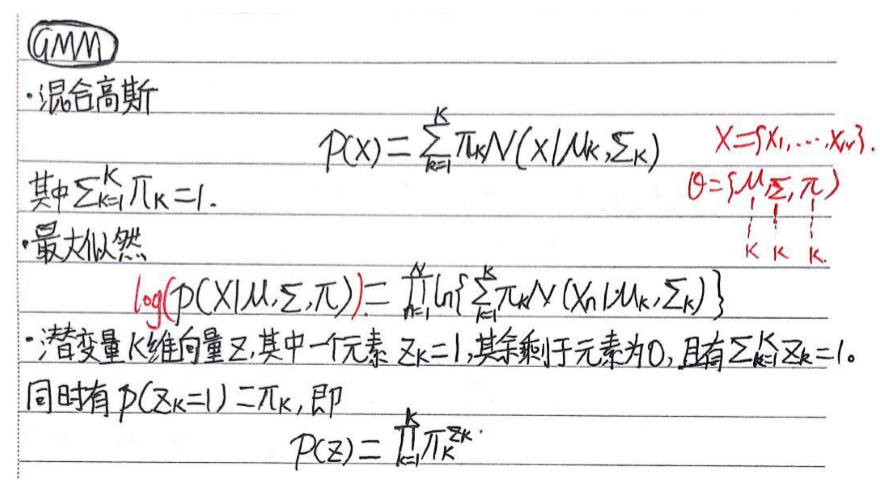 GMM
·混合高斯
P(X)=∑_{k=1}^{K} π_K N(X|μ_K,Σ_K) X={X_1,...,X_N}.
其中∑_{k=1}^{K} π_K=1. θ={μ,Σ,π}
K K K.
·最大似然
log(P(X|μ,Σ,π))=∏_{n=1}^{N} ln{∑_{k=1}^{K} π_K N(X_n|μ_K,Σ_K)}
·潜变量K维向量Z,其中一个元素 Z_K=1,其余剩于元素为0,且有∑_{k=1}^{K} Z_k=1。
同时有 P(Z_K=1)=π_K,即
P(Z)=∏_{k=1}^{K} π_K^{Z_K}.